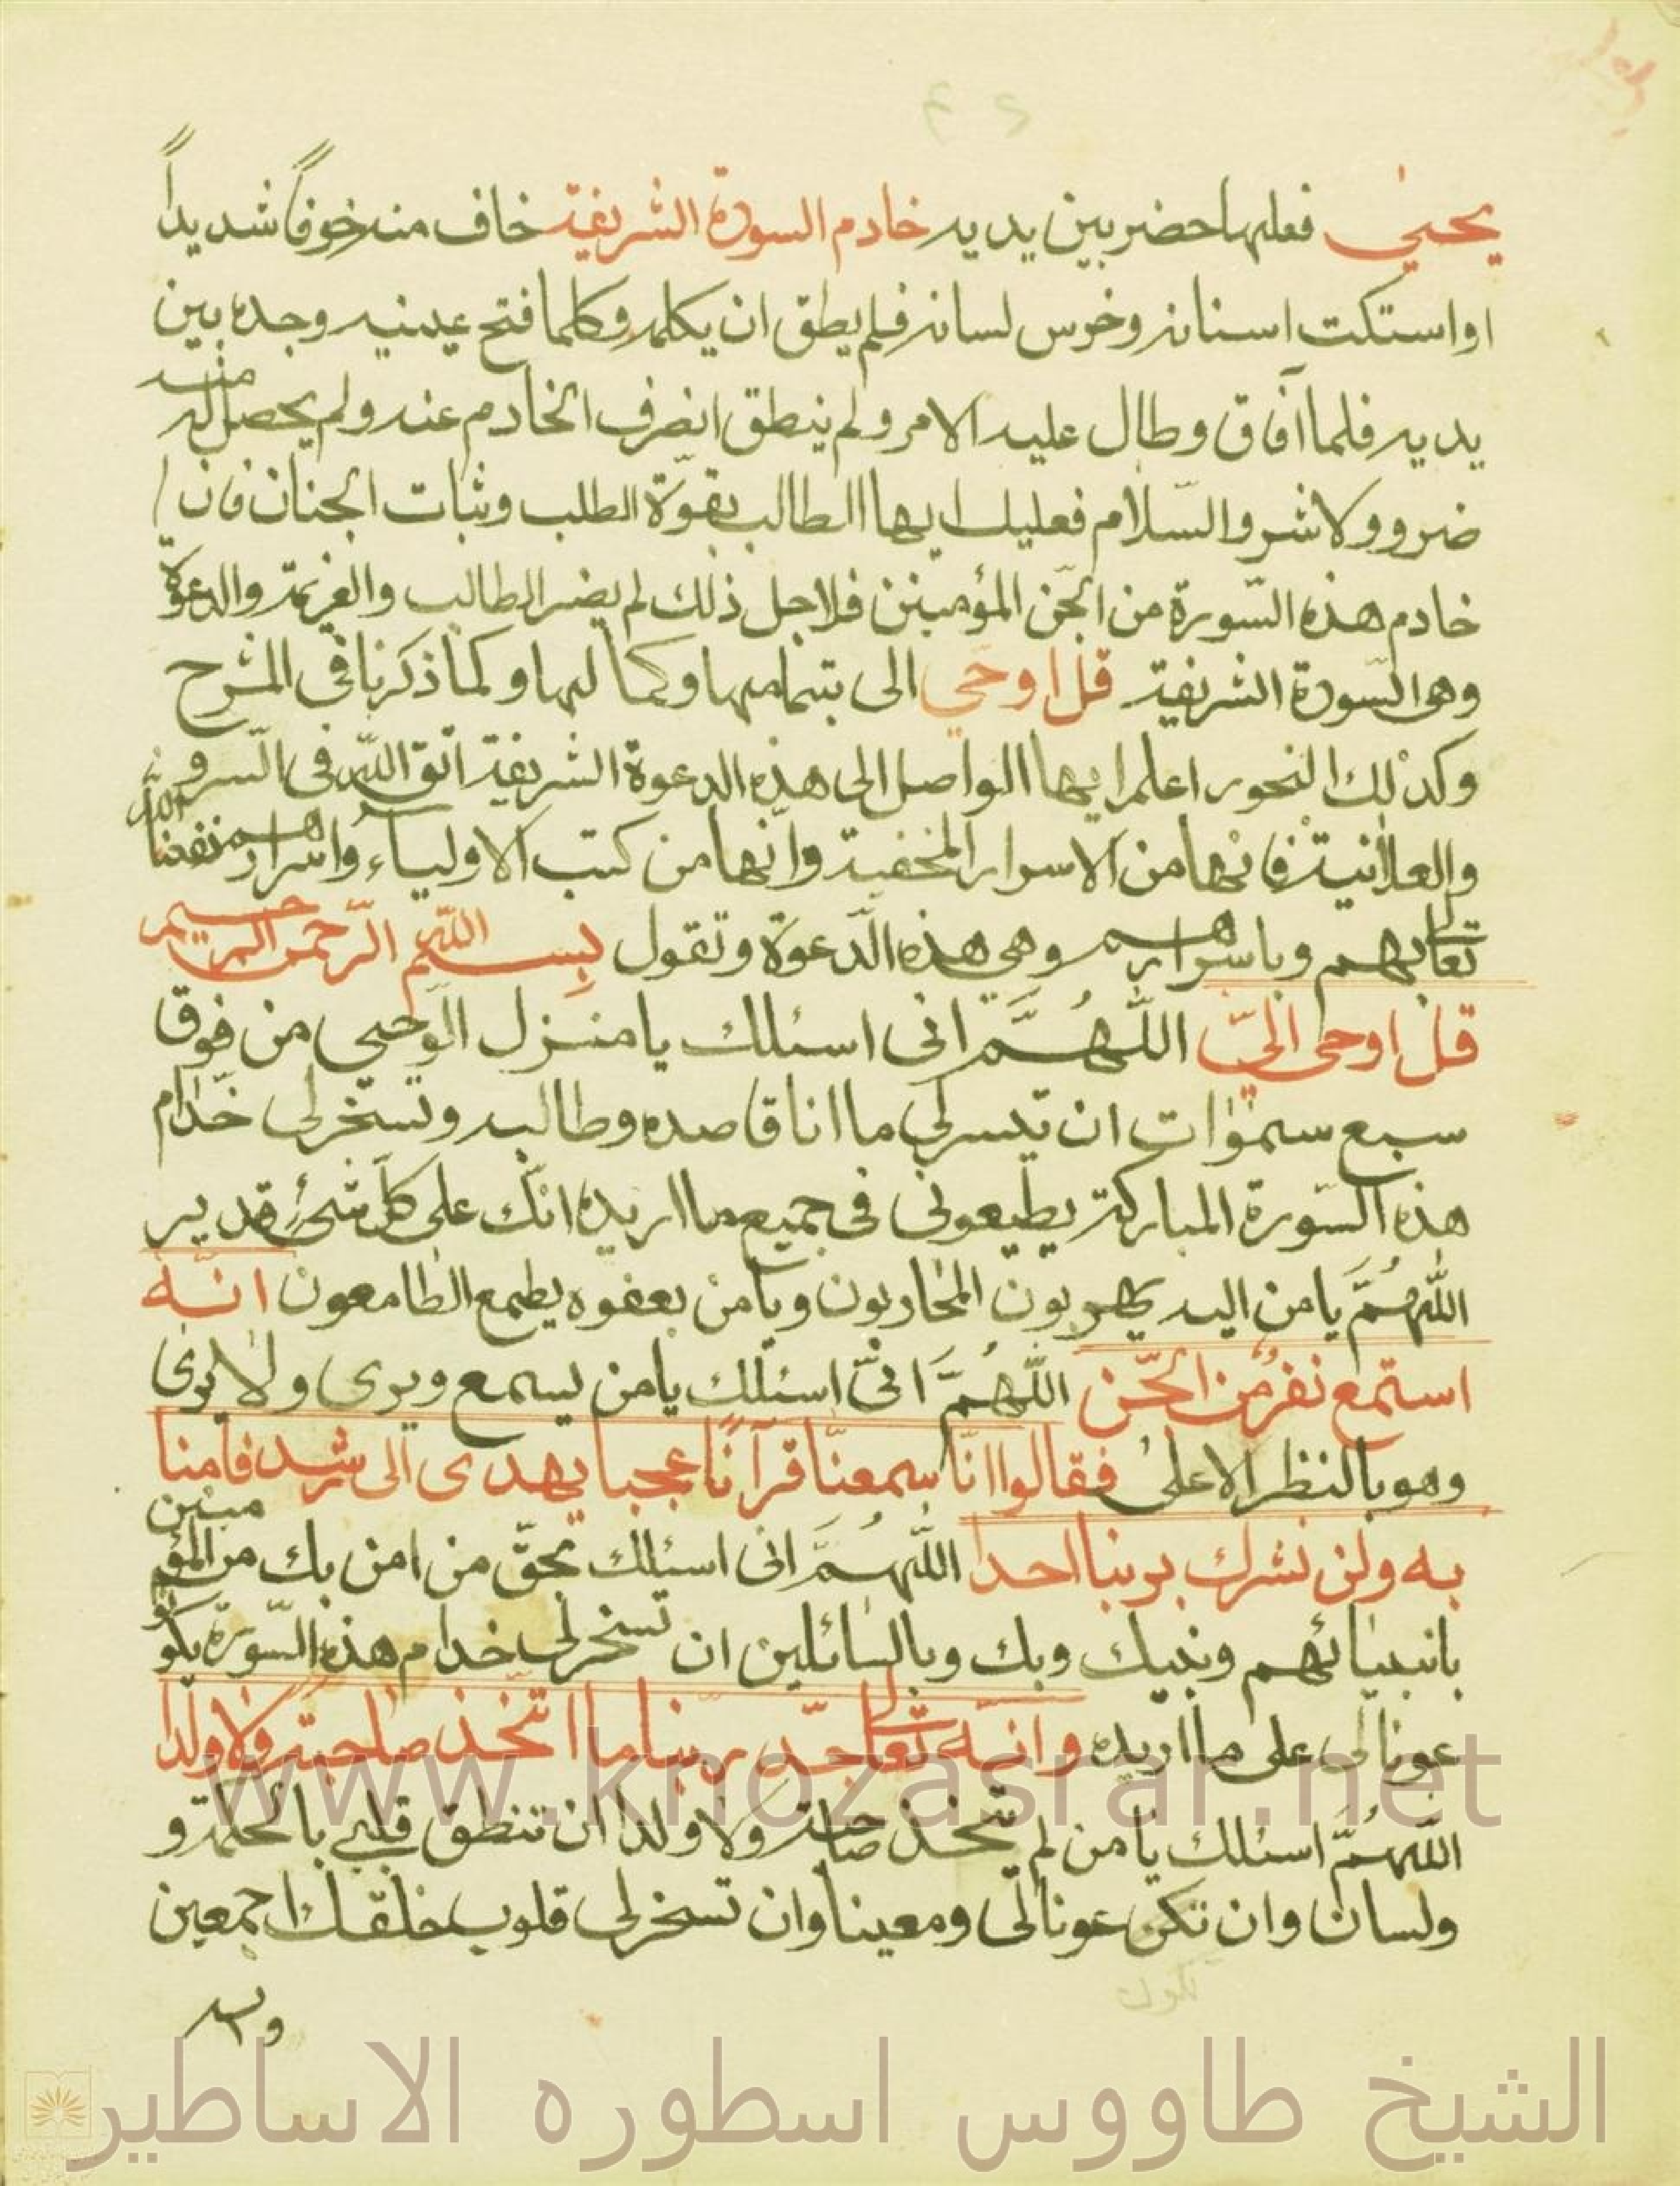 يحيى فعلها حضر بين يديه خادم السورة الشريفة خاف منه خوفاً شديداً
او استكت اسنانه وخرس لسانه فلم يطق ان يكلمه وكلما فتح عينيه وجده بين
يديه فلما آفاق وطال عليه الامر ولم ينطق انصرف الخادم عنه ولم يحصل له منه
ضرر ولا شر والسّلام فعليك ايها الطالب بقوّة الطلب وثبات الجنان فان
خادم هذه السّورة من الجنّ المؤمنين فلاجل ذلك لم يضر الطالب والعزيمة والدعوة
وهى السّورة الشريفة قل اوحي الى بتمامها وكمالها وكما ذكرنا فى الشرح
وكذلك البخور اعلم ايها الواصل الى هذه الدعوة الشريفة اتق اللّه فى السّر و
والعلانية فانها من الاسرار المخفية وانّها من كتب الاولياء واسرارهم نفعنا الله
تعالى بهم وباسرارهم وهي هذه الدّعوة وتقول بسم اللّه الرّحمن الرحيم
قل اوحى اليّ اللّهُمَّ انى اسئلك يا منزل الوحى من فوق
سبع سموات ان تيسر لى ما انا قاصده وطالبه وتسخر لى خدّام
هذه السّورة المباركة يطيعونى فى جميع ما اريده انّك على كلّ شئ قدير
اللّهُمَّ يا من اليه يهربون الهاربون ويا من بعفوه يطمع الطامعون انّه
استمع نفرٌ من الجّن اللّهُمَّ انىّ اسئلك يا من يسمع ويرى ولا يرى
وهو بالنظر الاعلى فقالوا انّا سمعنا قرآنًا عجبا يهدى الى الرشد فامنا
به ولن نشرك بربنا احدا اللّهُمَّ انى اسئلك بحقّ من امن بك من المؤمنين
بانبيائهم ونبيك وبك وبالسائلين ان تسخر لى خدام هذه السّورة يكو
عونا لى على ما اريده وانّه تعالى جدّ ربّنا ما اتّخذ صاحبة ولا ولدا
اللّهُمَّ اسئلك يا من لم يتخذ صاحبة ولا ولدا ان تنطق قلبى بالحكمة و
ولسان وان تكن عونا لى ومعينا وان تسخر لى قلوب خلقك اجمعين
تكون
www.knozasrar.net
الشيخ طاووس اسطوره الاساطير